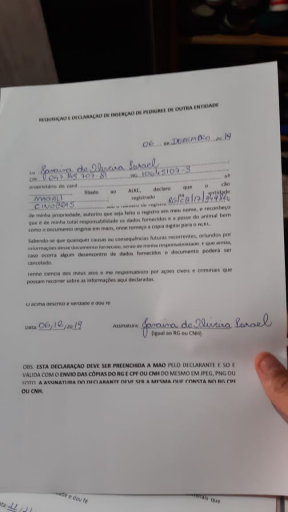 REQUISIÇÃO E DECLARAÇÃO DE INSERÇÃO DE PEDIGREE DE OUTRA ENTIDADE
06 DEZEMBRO 19
de Oliveira Israel
proprietário do canil nº
filiado ao ALKC, declaro que o cão
registrado entidade
de minha propriedade, autorizo que seja feito o registro em meu nome, e reconheço
que é de minha total responsabilidade os dados fornecidos e a posse do animal bem
como o documento original em mãos, onde forneço a cópia digital para o ALKC.
Sabendo-se que quaisquer causas ou consequências futuras recorrentes, oriundos por
informações desse documento fornecido, serão de minha responsabilidade. E que ainda,
caso ocorra algum desencontro de dados fornecidos o documento poderá ser
cancelado.
Tenho ciência dos meus atos e me responsabilizo por ações cíveis e criminais que
possam recorrer sobre as informações aqui declaradas.
O acima descrito é verdade e dou fé
Data: 06/12/19 Assinatura: de Oliveira Israel
(Igual ao RG ou CNH)
OBS: ESTA DECLARAÇÃO DEVE SER PREENCHIDA A MÃO PELO DECLARANTE E SÓ É
VÁLIDA COM O ENVIO DAS CÓPIAS DO RG E CPF OU CNH DO MESMO EM JPEG, PNG OU
FOTO. A ASSINATURA DO DECLARANTE DEVE SER A MESMA QUE CONSTA NO RG CPF
OU CNH.